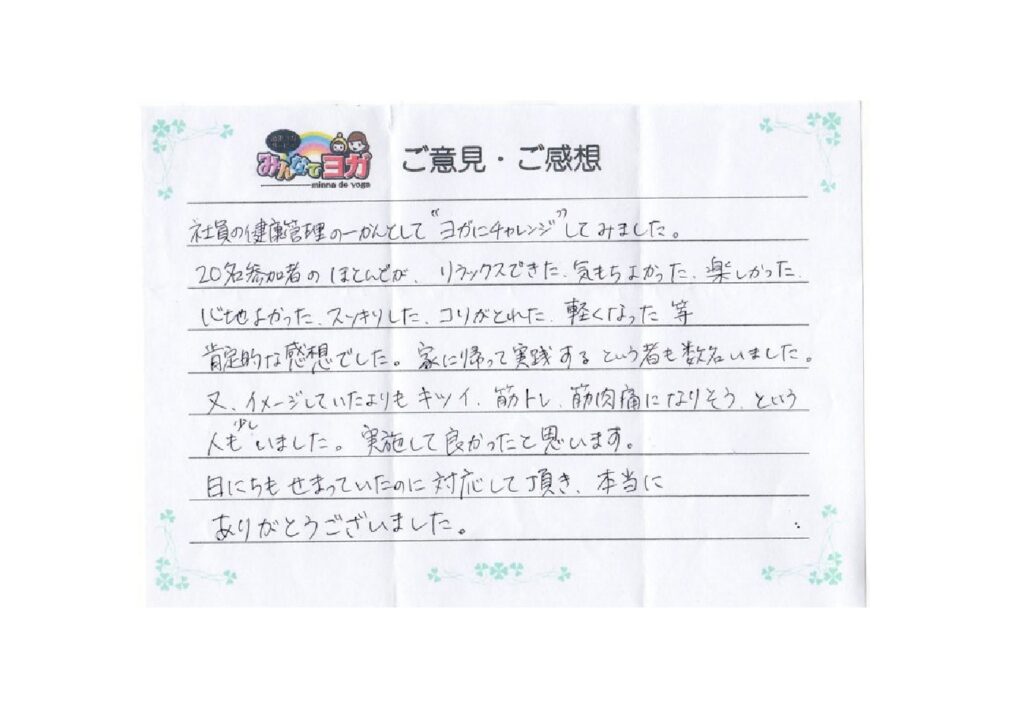 みんなでヨガ
minna de yoga
ご意見・ご感想
社員の健康管理の一かんとして“ヨガにチャレンジ”してみました。
20名参加者のほとんどが、リラックスできた、気もちよかった、楽しかった、
心地よかった、スッキリした、コリがとれた、軽くなった 等
肯定的な感想でした。家に帰って実践するという者も数名いました。
又、イメージしていたよりもキツイ、筋トレ、筋肉痛になりそう、という
人も少しいました。実施して良かったと思います。
日にちもせまっていたのに対応して頂き、本当に
ありがとうございました。